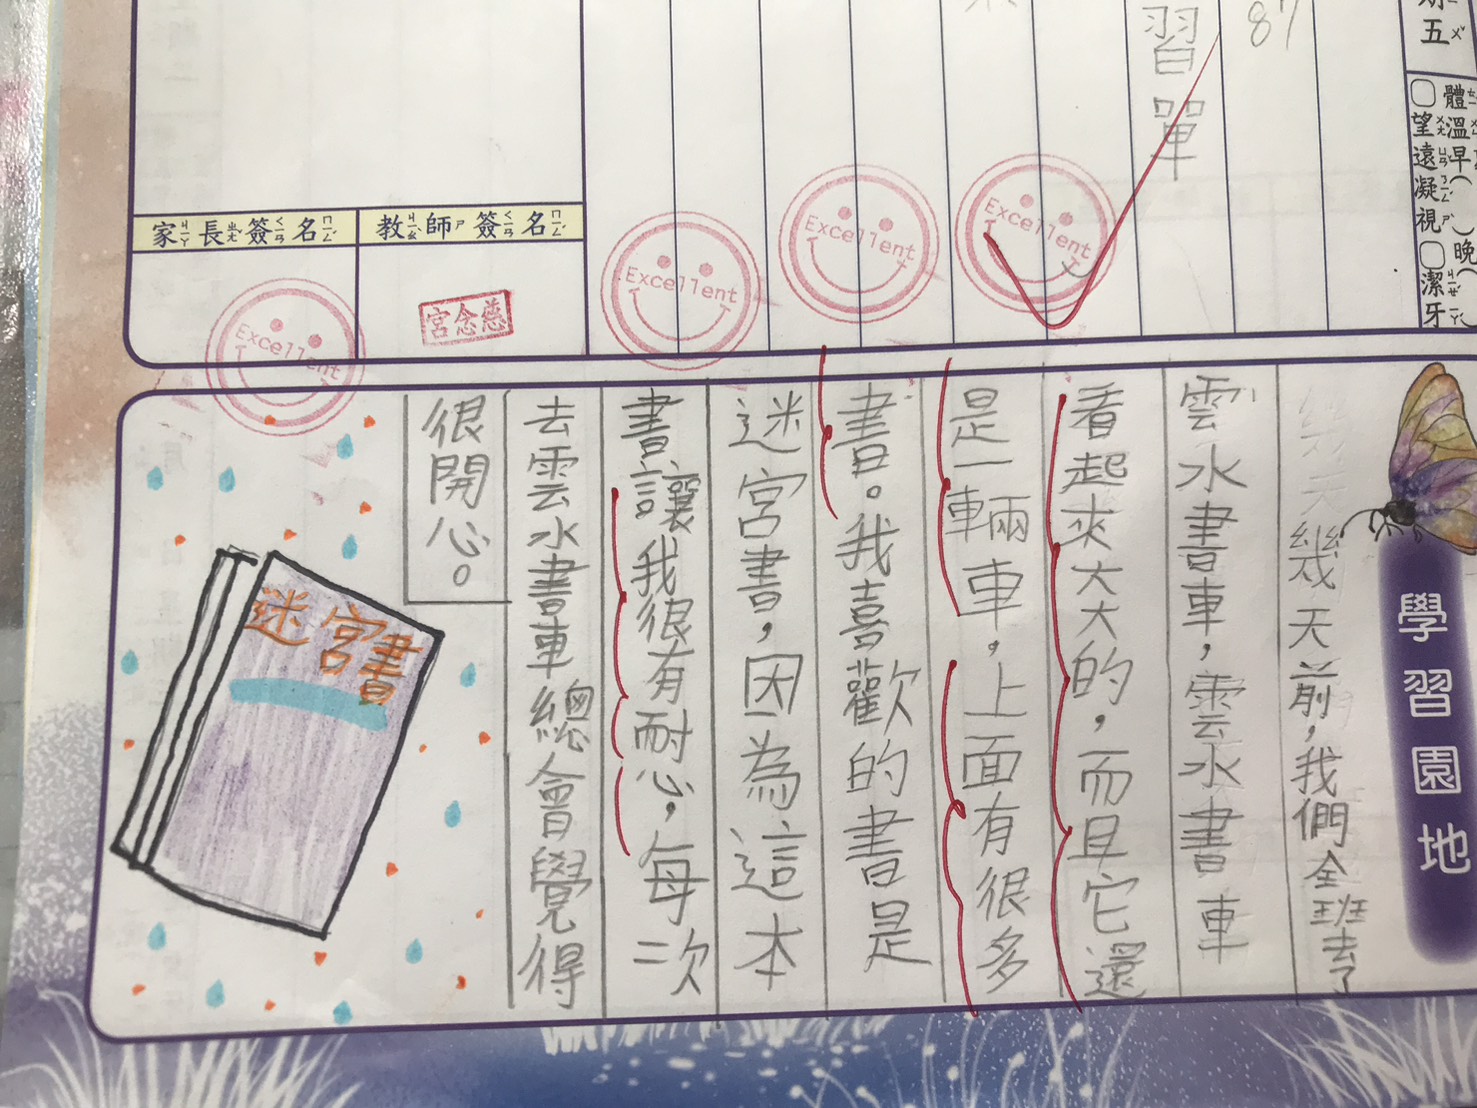 五ㄨˇ
體溫早
望遠凝視
晚
潔牙
87
習單
Excellent
Excellent
Excellent
教師簽名
家長簽名
慈念宮
Excellent
學習園地
幾天前，我們全班去了
雲水書車，雲水書車
看起來大大的，而且它還
是一輛車，上面有很多
書。我喜歡的書是
迷宮書，因為這本
書讓我很有耐心，每次
去雲水書車總會覺得
很開心。
迷宮書